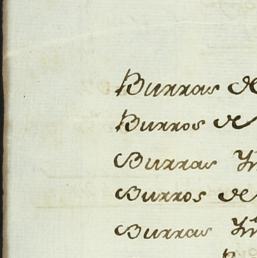 Burras de
Burros de
Burras
Burros de
Burras